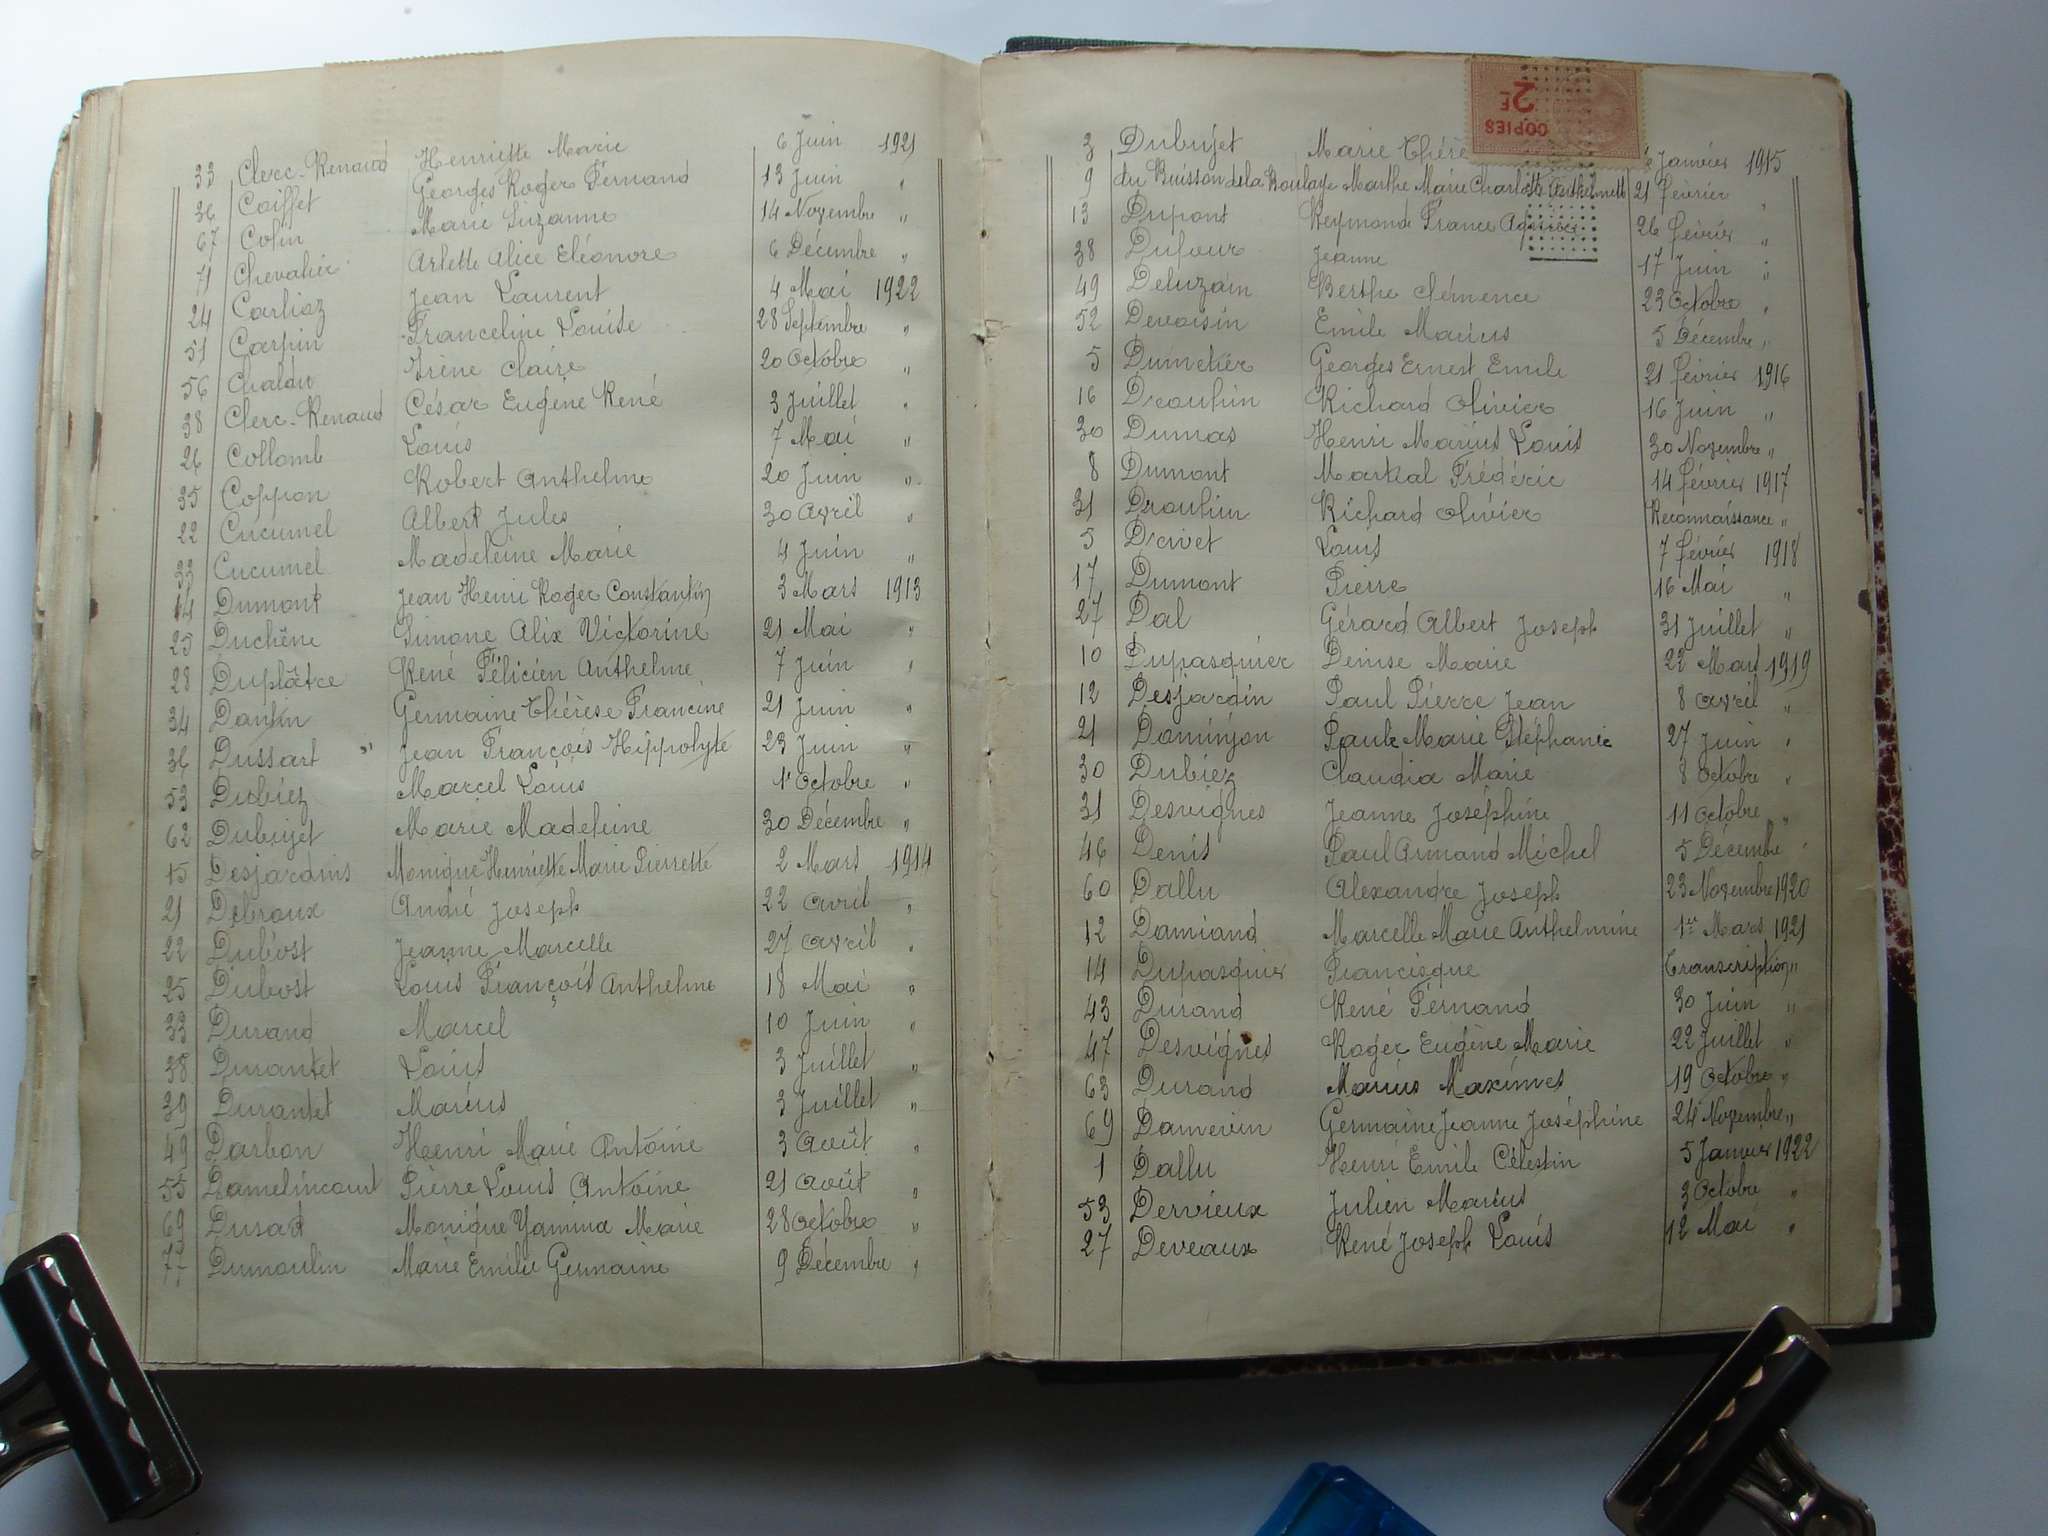 33 Clerc-Renaud Henriette Marie 6 Juin 1921
36 Coiffet Georges Roger Fernand 13 Juin "
67 Colin Marie Suzanne 14 Novembre "
71 Chevalier Arlette Alice Eléonore 6 Décembre "
24 Carlioz Jean Laurent 4 Mai 1922
51 Carpin Franceline Louise 28 Septembre "
56 Chaldu Irène Claire 20 Octobre "
38 Clerc-Renaud César Eugène René 3 Juillet "
26 Collomb Louis 7 Mai "
35 Coppon Robert Anthelme 20 Juin "
22 Cucumel Albert Jules 30 Avril "
Cucumel Madeleine Marie 4 Juin "
14 Dumont Jean Henri Roger Constantin 3 Mars 1913
25 Duchêne Simone Alix Victorine 21 Mai "
28 Duplâtre René Félicien Anthelme 7 Juin "
34 Dantin Germaine Thérèse Francine 21 Juin "
36 Dussart " Jean François Hippolyte 23 Juin "
53 Dubiez Marcel Louis 1r Octobre "
62 Dubujet Marie Madeleine 30 Décembre "
15 Desjardins Monique Henriette Marie Pierrette 2 Mars 1914
21 Debroux André Joseph 22 Avril "
22 Dubost Jeanne Marcelle 27 Avril "
25 Dubost Louis François Anthelme 18 Mai "
33 Durand Marcel 10 Juin "
38 Durantet Louis 3 Juillet "
39 Durantet Marius 3 Juillet "
49 Darbon Henri Marie Antoine 3 Août "
55 Damelincourt Pierre Louis Antoine 21 Août "
69 Dusart Monique Yamina Marie 28 Octobre "
Dumoulin Marie Emilie Germaine 9 Décembre "
COPIES 2F
3 Dubujet Marie Janvier 1915
9 du Buisson de la Boulaye Marthe Marie Charlotte 21 Février "
13 Dupont Reymond France 26 Février "
38 Dufour Jeanne 17 Juin "
49 Deluzain Berthe Clémence 23 Octobre "
52 Devoisin Emile Marius 5 Décembre "
5 Dumetier Georges Ernest Emile 21 Février 1916
16 Drouhin Richard Olivier 16 Juin "
30 Dumas Henri Marius Louis 30 Novembre "
8 Dumont Martial Frédéric 14 Février 1917
31 Drouhin Richard Olivier Reconnaissance "
5 Drivet Louis 7 Février 1918
17 Dumont Pierre 16 Mai "
27 Dal Gérard Albert Joseph 31 Juillet "
10 Dupasquier Denise Marie 22 Mars 1919
12 Desjardin Paul Pierre Jean 8 Avril "
21 Dominjon Paule Marie Stéphanie 27 Juin "
30 Dubiez Claudia Marie 8 Octobre "
31 Desvignes Jeanne Joséphine 11 Octobre "
46 Denis Paul Armand Michel 5 Décembre "
60 Dallu Alexandre Joseph 23 Novembre 1920
12 Damiand Marcelle Marie Anthelmine 1er Mars 1921
14 Dupasquier Francisque Transcription "
43 Durand René Fernand 30 Juin "
47 Desvignes Roger Eugène Marie 22 Juillet "
63 Durand Marius Maximes 19 Octobre "
69 Damevin Germaine Jeanne Joséphine 24 Novembre "
1 Dallu Henri Emile Célestin 5 Janvier 1922
53 Dervieux Julien Marius 3 Octobre "
27 Deveaux René Joseph Louis 12 Mai "